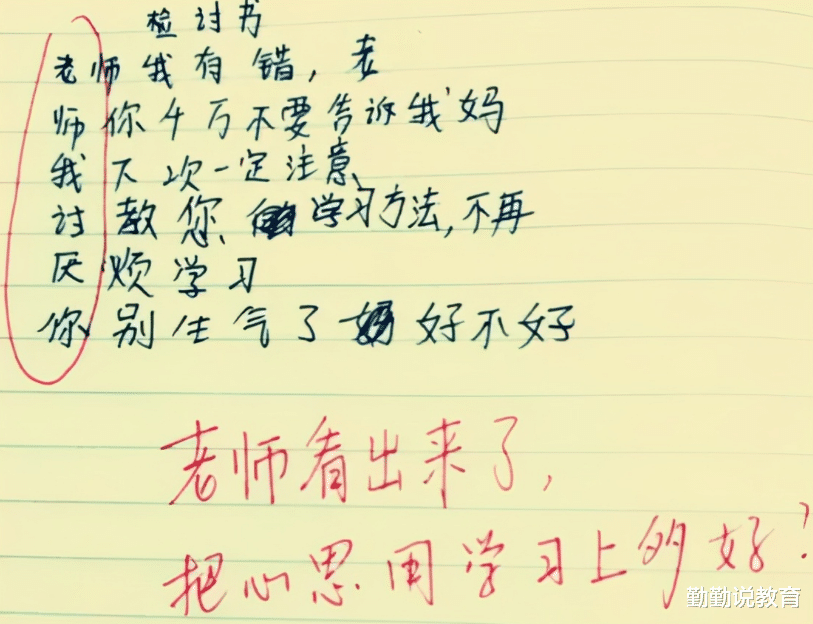 检讨书
老师我有错,老
师你千万不要告诉我妈
我下次一定注意、
讨教您、学习方法,不再
厌烦学习
你别生气了好不好
老师看出来了,
把心思用学习上多好?
勤勤说教育